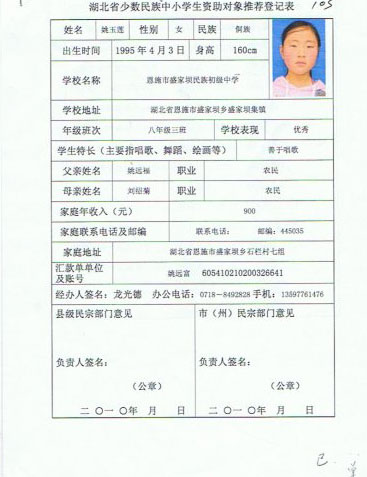 湖北省少数民族中小学生资助对象推荐登记表
105
姓名 姚玉莲 性别 女 民族 侗族
出生时间 1995年4月3日 身高 160cm
学校名称 恩施市盛家坝民族初级中学
学校地址 湖北省恩施市盛家坝乡盛家坝集镇
年级班次 八年级三班 学校表现 优秀
学生特长（主要指唱歌、舞蹈、绘画等） 善于唱歌
父亲姓名 姚远福 职业 农民
母亲姓名 刘绍菊 职业 农民
家庭年收入（元） 900
家庭联系电话及邮编 联系电话： 邮编：445035
家庭地址 湖北省恩施市盛家坝乡石栏村七组
汇款单单位及账号 姚远富 605410210200326641
经办人签名：龙光德 办公电话：0718-8492828 手机：13597761476
县级民宗部门意见 市（州）民宗部门意见
负责人签名： 负责人签名：
（公章） （公章）
二〇一〇年 月 日 二〇一〇年 月 日